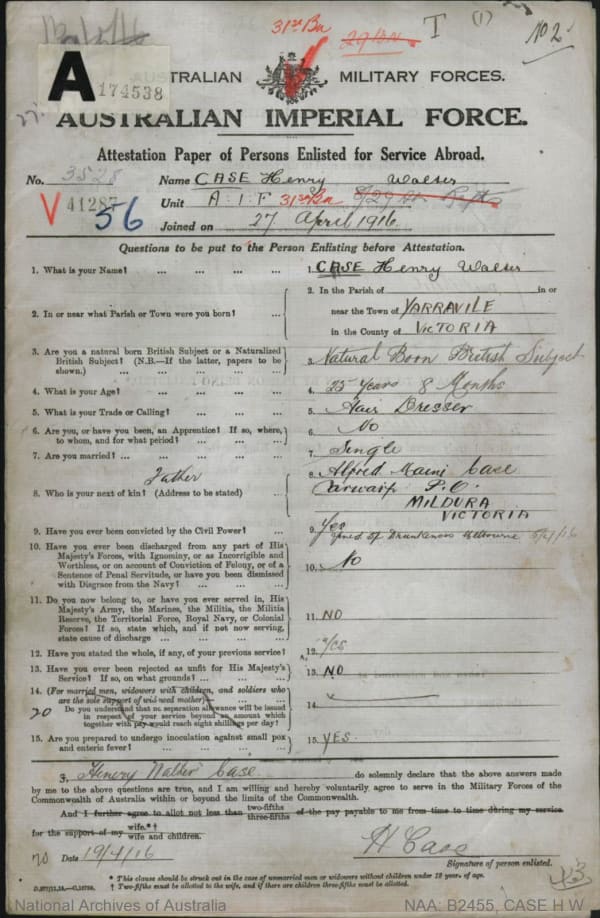 31st Bn 29 BN T (1) No 2
A 174538
AUSTRALIAN MILITARY FORCES.
AUSTRALIAN IMPERIAL FORCE.
Attestation Paper of Persons Enlisted for Service Abroad.
No. 3528 Name CASE Henry Walter
V 41287 56 Unit A.I.F 31st Bn 8/29th Bn Rfts
Joined on 27 April 1916.
Questions to be put to the Person Enlisting before Attestation.
1. What is your Name? ... ... ... ... 1. CASE Henry Walter
2. In or near what Parish or Town were you born? ... 2. In the Parish of in or
near the Town of YARRAVILE
in the County of VICTORIA
3. Are you a natural born British Subject or a Naturalized
British Subject? (N.B.—If the latter, papers to be
shown.) ... ... ... ... 3. Natural Born British Subject
4. What is your Age? ... ... ... ... 4. 25 Years 8 Months
5. What is your Trade or Calling? ... ... ... 5. Hair Dresser
6. Are you, or have you been, an Apprentice? If so, where,
to whom, and for what period? ... ... ... 6. No
7. Are you married? ... ... ... ... 7. Single
Father
8. Who is your next of kin? (Address to be stated) ... 8. Alfred Case
Carwarp P.O.
MILDURA
VICTORIA
9. Have you ever been convicted by the Civil Power? ... 9. Yes
fined £1 Drunkeness Melbourne
10. Have you ever been discharged from any part of His
Majesty's Forces, with Ignominy, or as Incorrigible and
Worthless, or on account of Conviction of Felony, or of a
Sentence of Penal Servitude, or have you been dismissed
with Disgrace from the Navy? ... ... 10. No
11. Do you now belong to, or have you ever served in, His
Majesty's Army, the Marines, the Militia, the Militia
Reserve, the Territorial Force, Royal Navy, or Colonial
Forces? If so, state which, and if not now serving,
state cause of discharge ... ... ... 11. NO
12. Have you stated the whole, if any, of your previous service? 12. Yes
13. Have you ever been rejected as unfit for His Majesty's
Service? If so, on what grounds? ... ... 13. NO
14. (For married men, widowers with children, and soldiers who
are the sole support of widowed mother)—
Do you understand that no separation allowance will be issued
in respect of your service beyond an amount which
together with pay would reach eight shillings per day? 14.
15. Are you prepared to undergo inoculation against small pox
and enteric fever? ... ... ... ... 15. YES.
I, Henry Walter Case do solemnly declare that the above answers made
by me to the above questions are true, and I am willing and hereby voluntarily agree to serve in the Military Forces of the
Commonwealth of Australia within or beyond the limits of the Commonwealth.
And I further agree to allot not less than two-fifths three-fifths of the pay payable to me from time to time during my service
for the support of my wife.*† wife and children.
Date 19/4/16 H Case
Signature of person enlisted.
* This clause should be struck out in the case of unmarried men or widowers without children under 18 years of age.
† Two-fifths must be allotted to the wife, and if there are children three-fifths must be allotted.
National Archives of Australia NAA: B2455, CASE H W